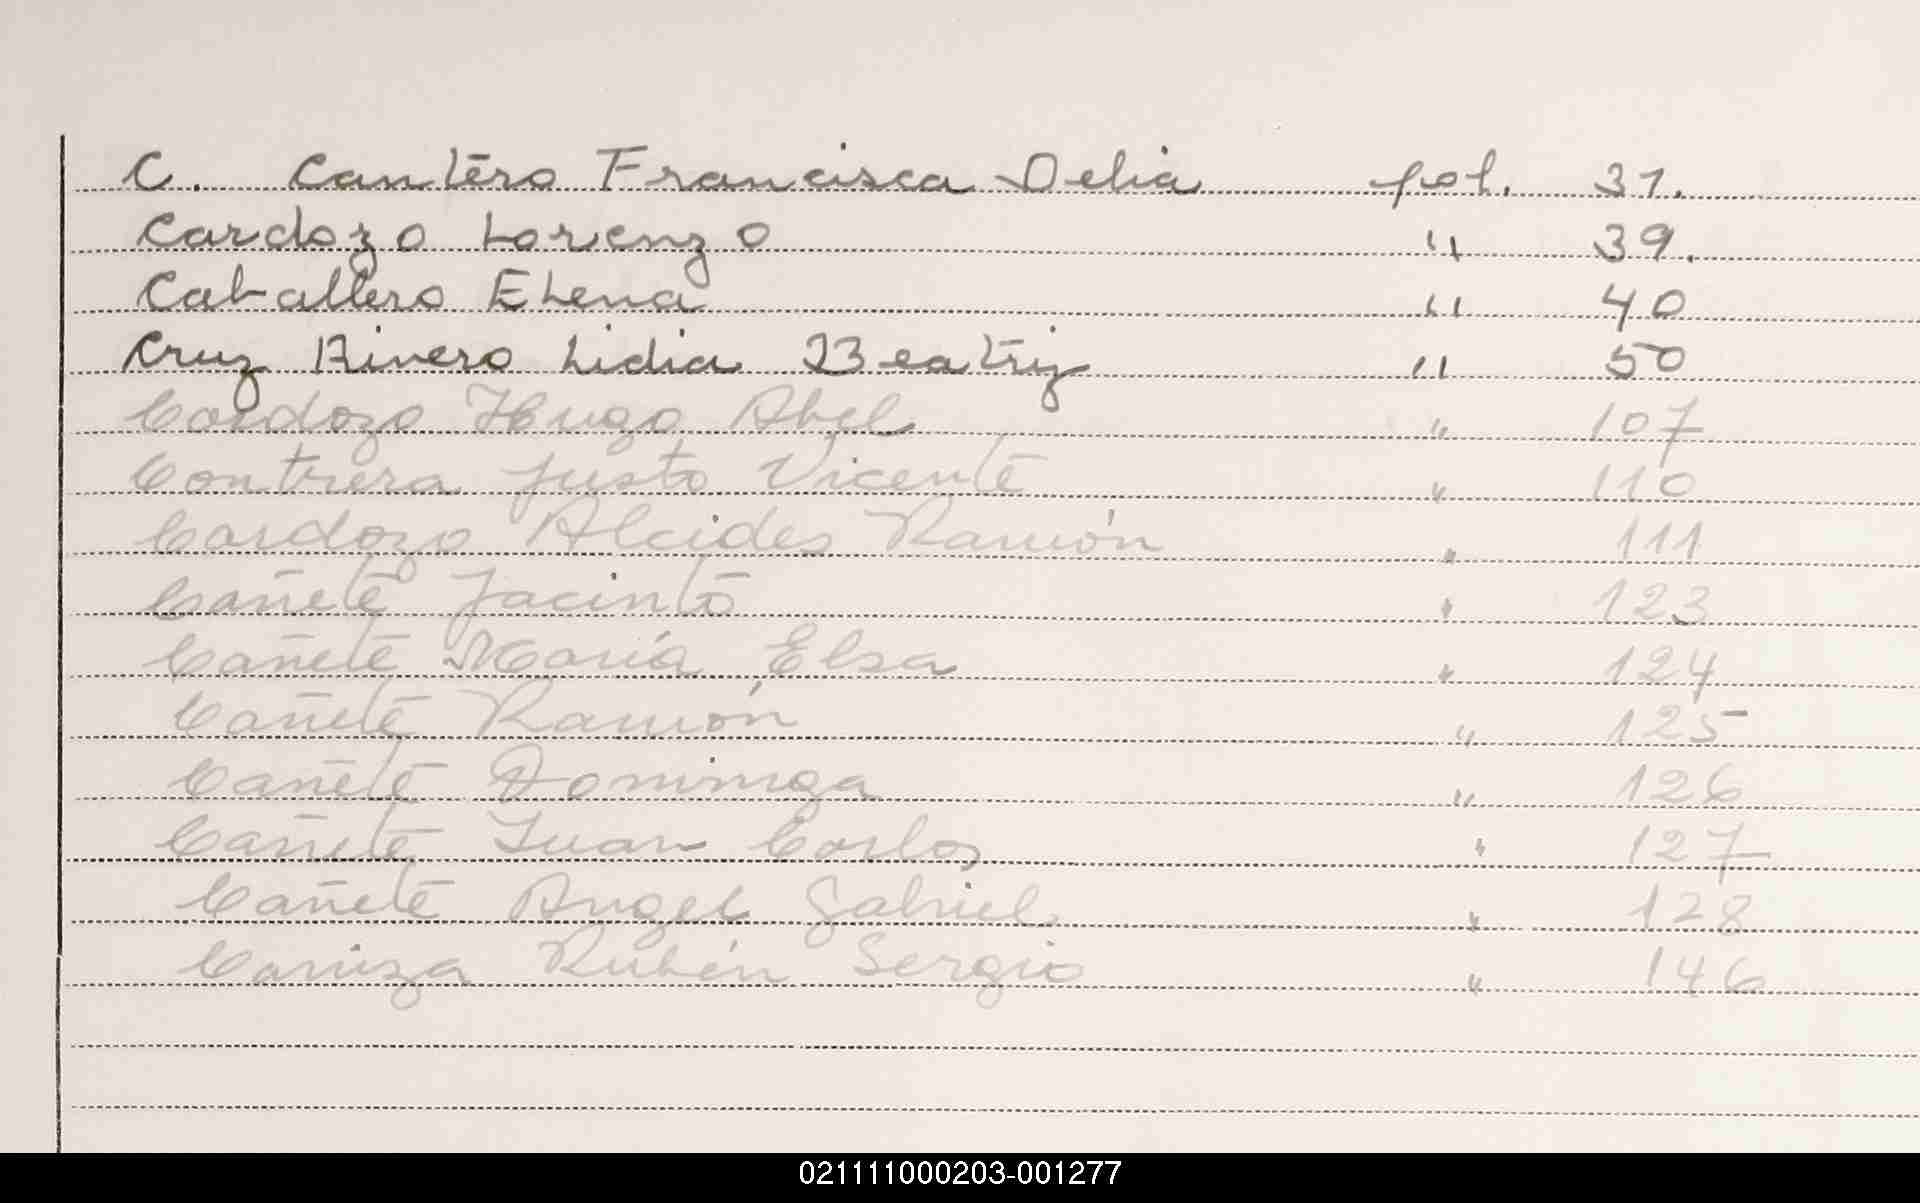 C. Cantero Francisca Delia fol. 37.
Cardozo Lorenzo " 39.
Caballero Elena " 40
Cruz Rivero Lidia Beatriz " 50
Cardozo Hugo Abel " 107
Contrera Justo Vicente " 110
Cardozo Alcides Ramón " 111
Cañete Jacinto " 123
Cañete María Elsa " 124
Cañete Ramón " 125
Cañete Dominga " 126
Cañete Juan Carlos " 127
Cañete Angel Gabriel " 128
Caniza Rubén Sergio " 146
021111000203-001277